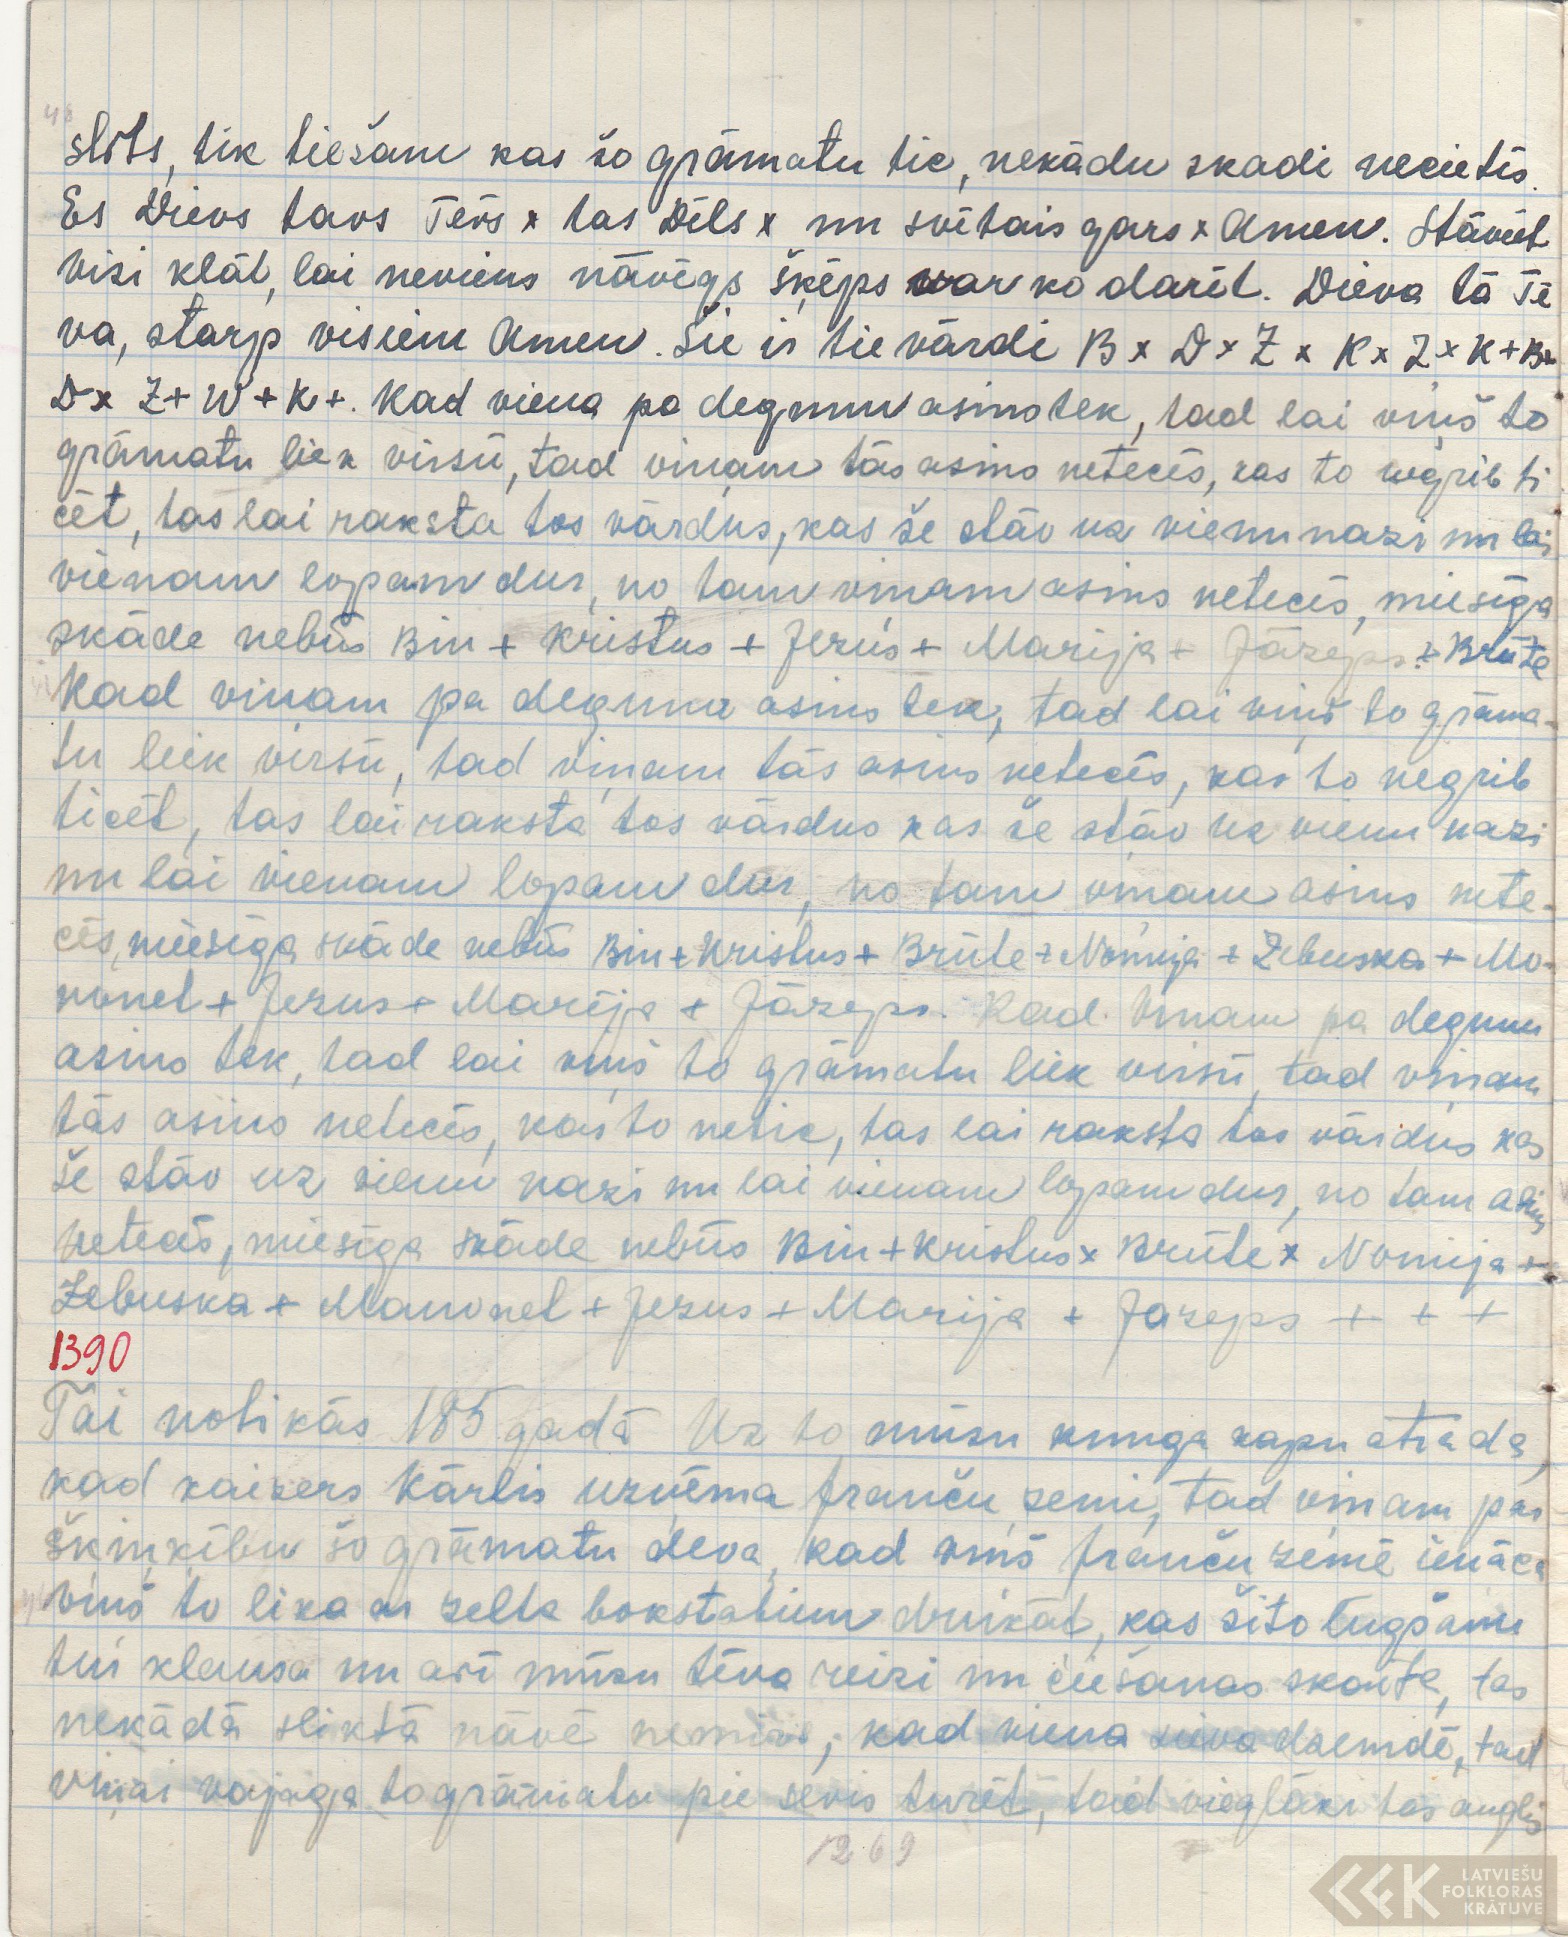 slēts, tik tiešam kas šo grāmatu tic, nekādu skadi necietīs.
Es Dievs tavs Tēvs x tas Dēls x un svētais gars x Amen. Stāviet
visi klāt, lai neviens nāvēgs šķēps war ko darīt. Dieva tā Tē
va, starp visiem Amen. Šie ir tie vārdi B x D x Z x K x Z x K + B x
D x Z + W + K +. Kad viena pa degunu asins tek, tad lai viņš to
grāmatu liek virsū, tad viņam tās asins netecēs, kas to negrib ti
cēt, tas lai raksta tos vārdus, kas še stāv uz vienu nazi un lai
vienam lopam dur, no tam viņam asins netecēs, miesīga
skāde nebūs Bin + Kristus + Jezus + Marija + Jāzeps. + Brūte
Kad viņam pa degunu asins tek, tad lai viņš to grāma-
tu liek virsū, tad viņam tās asins netecēs, kas to negrib
ticēt, tas lai raksta tos vārdus kas še stāv uz vienu nazi
un lai vienam lopam dur, no tam viņam asins nete-
cēs, miesīga skāde nebūs Bin + Kristus + Brūte + Nomija + Zebuska + Mo-
nonel + Jezus + Marija + Jāzeps. Kad viņam pa degunu
asins tek, tad lai viņš to grāmatu liek virsū, tad viņam
tās asins netecēs, kas to netic, tas lai raksta tos vārdus kas
še stāv uz vienu nazi un lai vienam lopam dur, no tam asins
netecēs, miesīga skāde nebūs Bin + Kristus x Brūte x Nomija +
Zebuska + Mamonel + Jezus + Marija + Jazeps + + +
1390
Tai notikās 185 gadā Uz to mūsu kunga kapu atrada,
kad kaizers Kārlis uzņēma franču zemi, tad viņam par
šķiņķību šo grāmatu deva, kad viņš franču zemē ienāca
viņš to lika ar zelta bokstabiem drukāt, kas šito lugšanu
tur klausa un arī mūsu tēva reizi un ciešanas skaita, tas
nekādā sliktā nāvē nemirs, kad viena sieva dzemdē, tad
viņai vajaga to grāmatu pie sevis turēt, tad vieglāki tas auglis
1269
LATVIEŠU
FOLKLORAS
KRĀTUVE